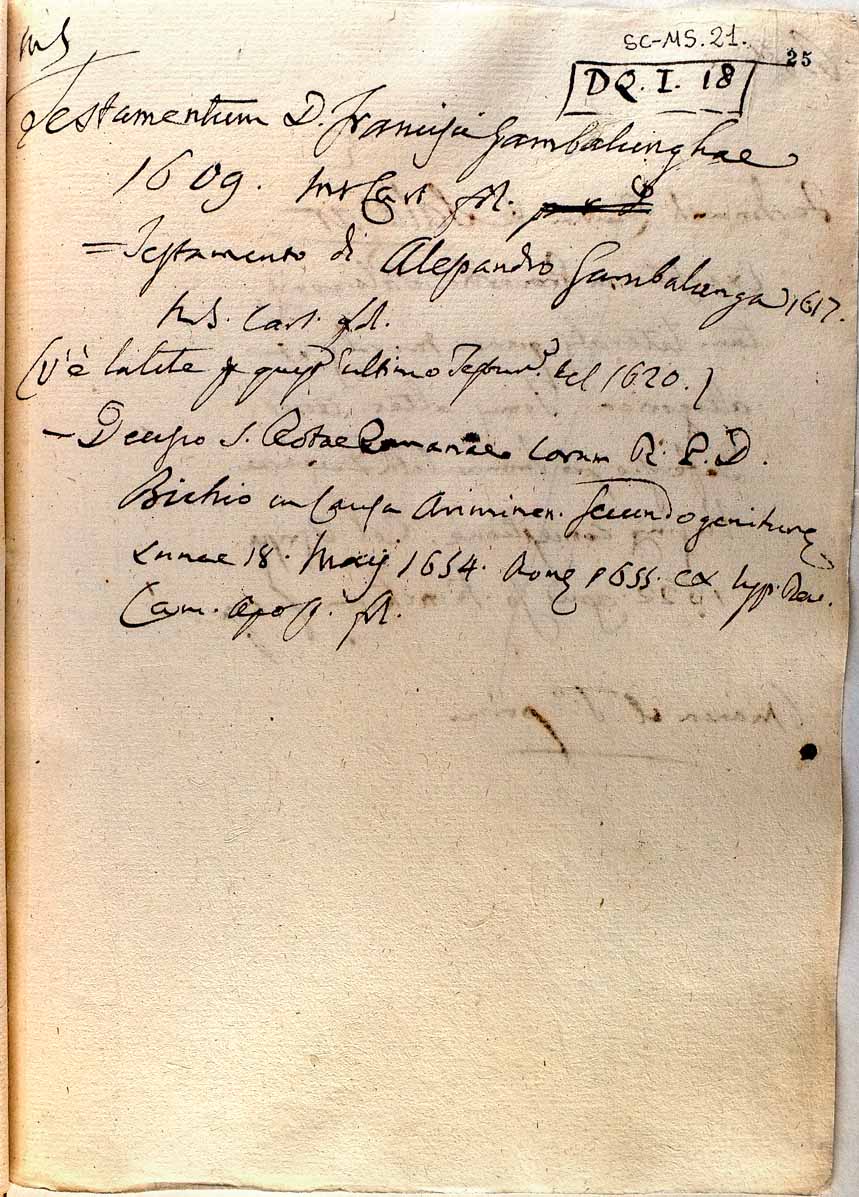 MS
SC-MS. 21.
25
DQ. I. 18
Testamentum D. Francisci Gambalunghae
1609. MS Cart. fol.
= Testamento di Alessandro Gambalunga 1617.
MS. Cart. fol.
(v'è la lite p quest'ultimo Testam.º del 1620.)
– Decisio S. Rotae Romanae Coram R. P. D.
Bichio in Causa Ariminen. Secundogeniturae
Lunae 18. Maij 1654. Romae 1655. ex typ. Rev.
Cam. Apost. fol.